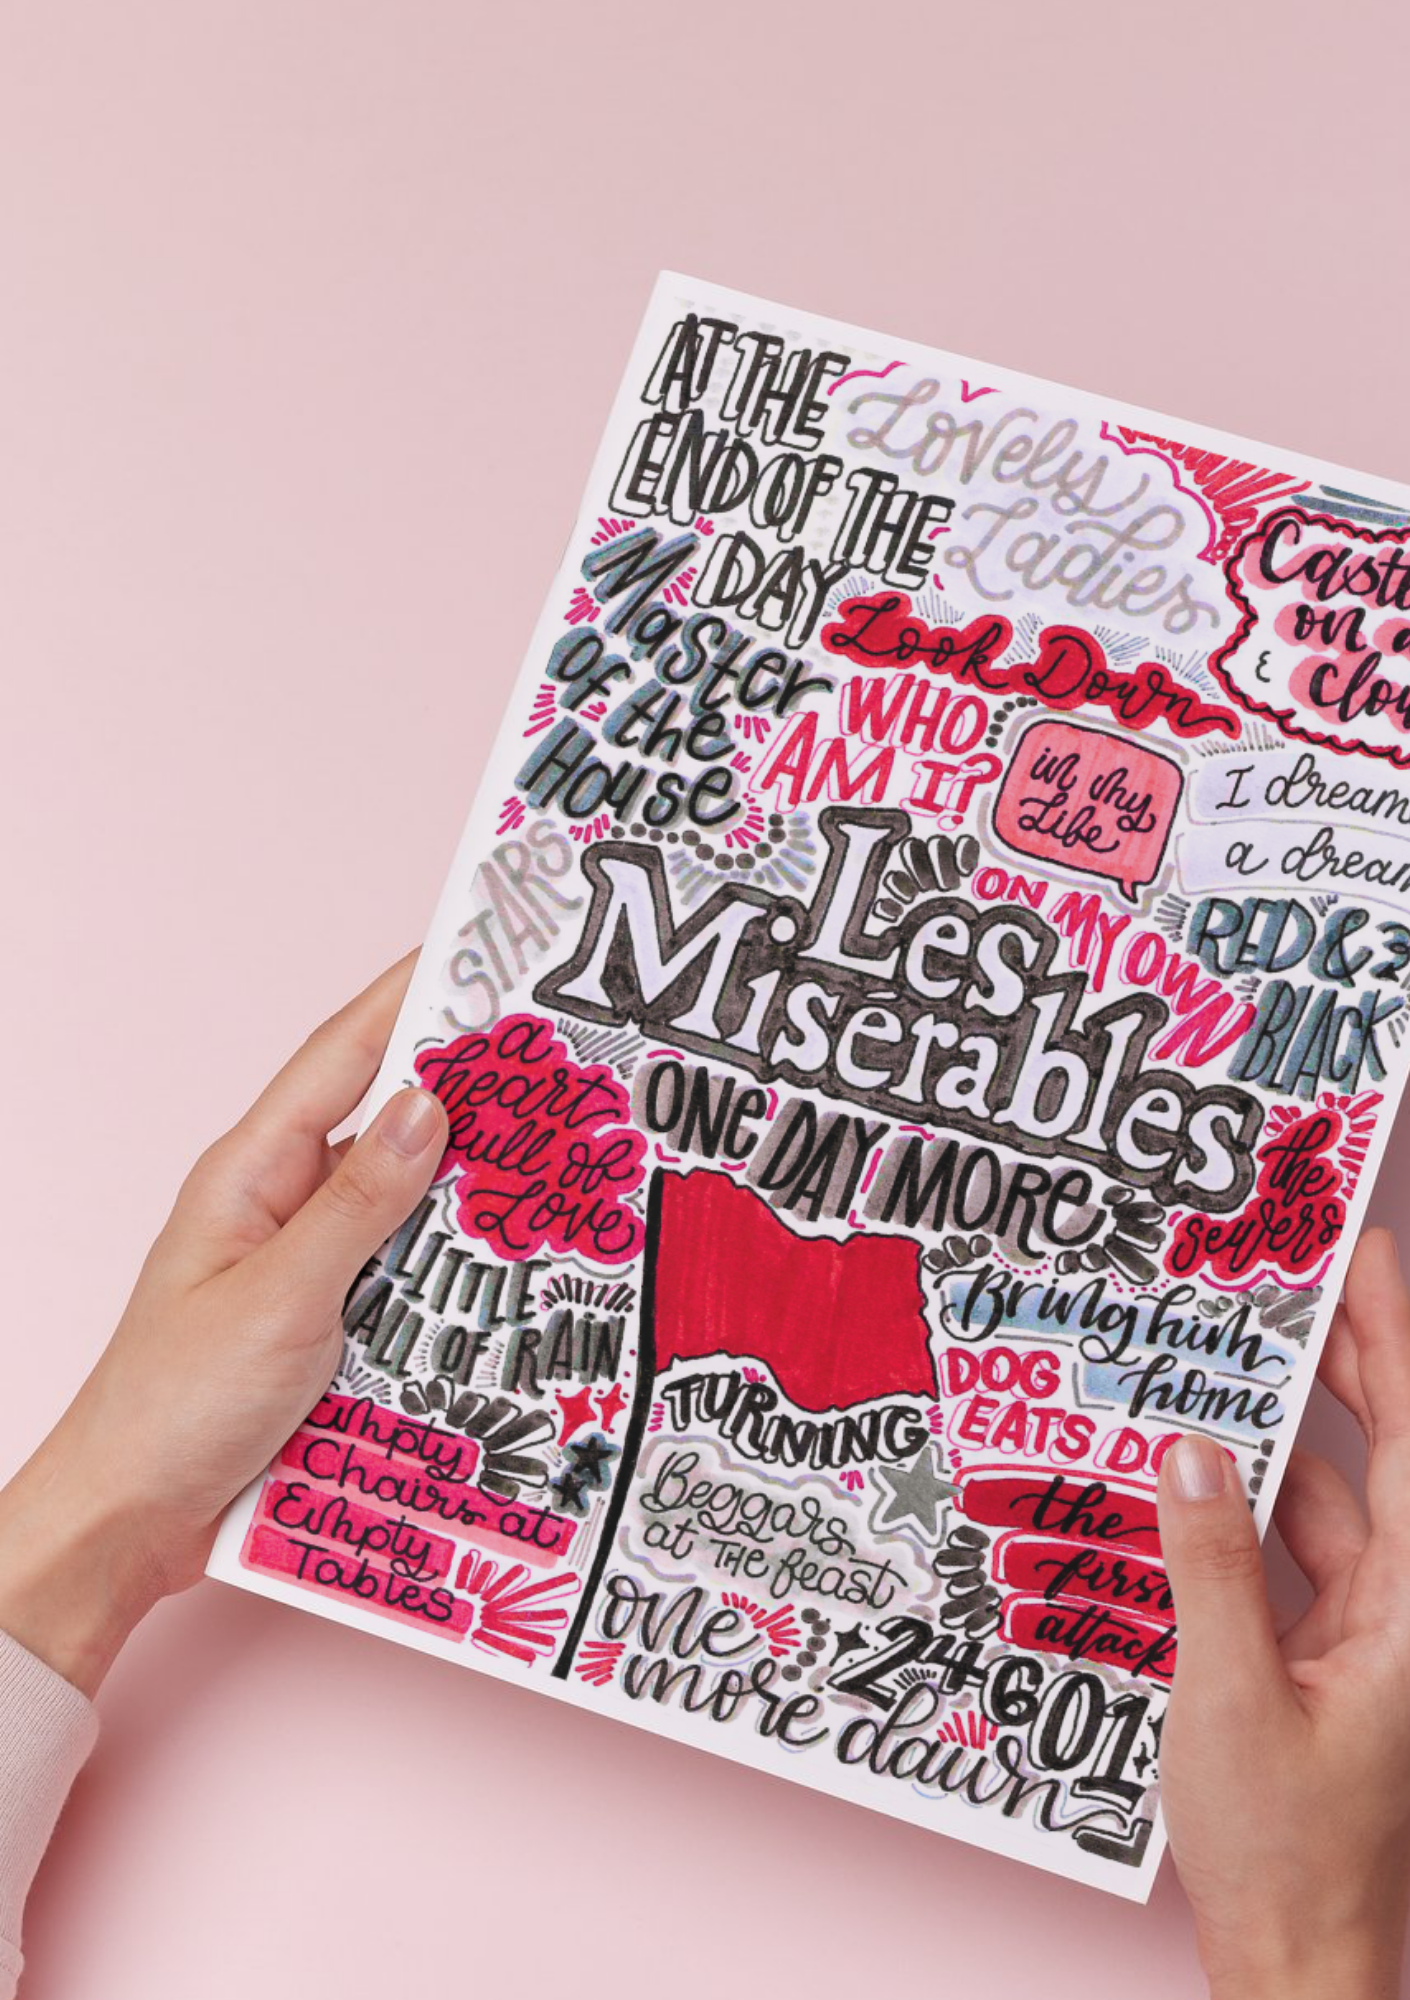 AT THE
END OF THE
DAY
Lovely
Ladies
Castl
on a
clou
Master
of the
House
Look Down
WHO
AM I?
in my
Life
I dream
a dream
STARS
Les
Misérables
ON MY OWN
RED &
BLACK
a
heart
full of
Love
ONE DAY MORE
the
sewers
LITTLE
FALL OF RAIN
Bring him
home
DOG
EATS DO
TURNING
Empty
Chairs at
Empty
Tables
Beggars
at THE feast
the
first
attack
one
more dawn
24601